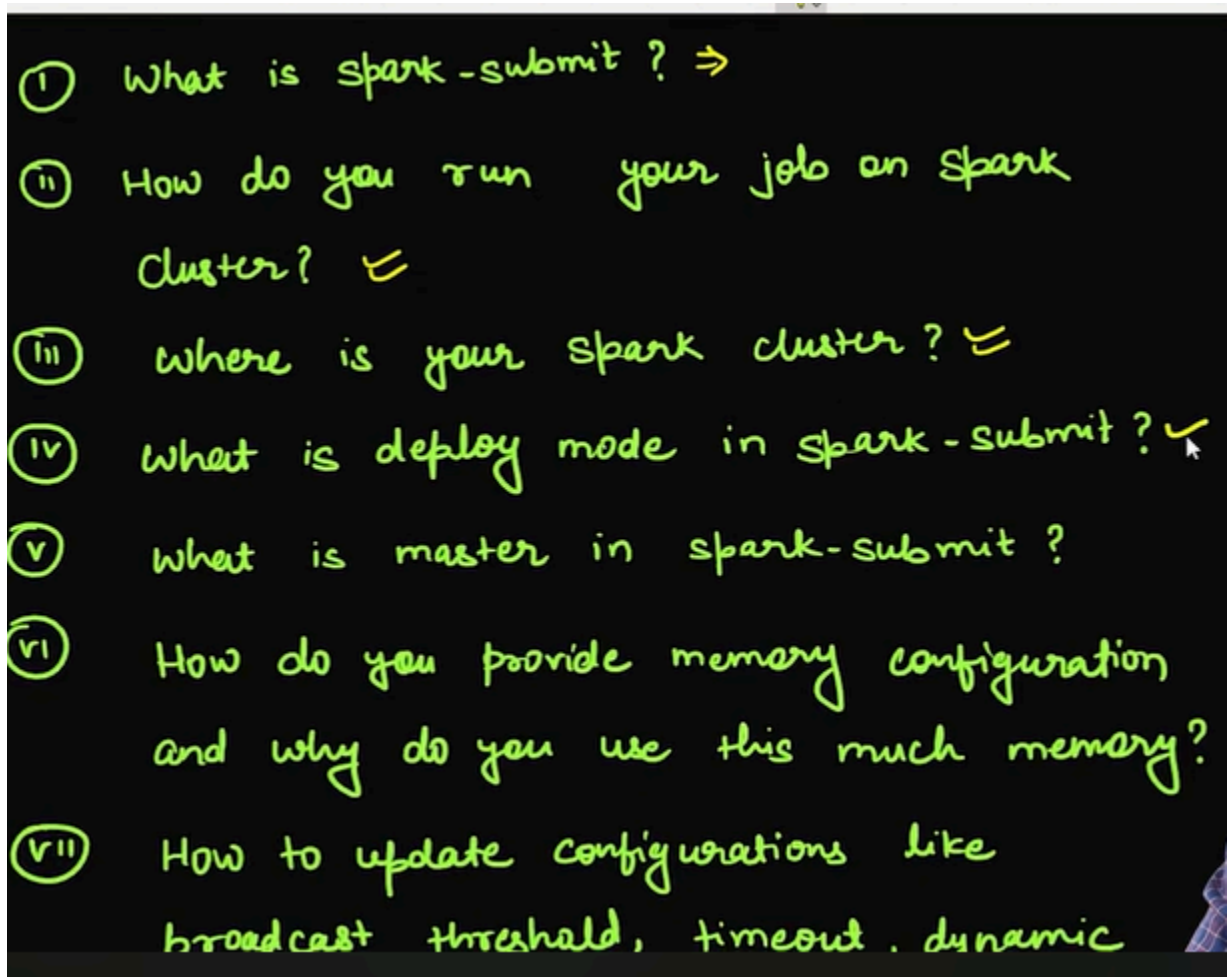 (i) What is spark-submit? ⇒
(ii) How do you run your job on Spark
cluster?
(iii) where is your spark cluster?
(iv) what is deploy mode in spark-submit?
(v) what is master in spark-submit?
(vi) How do you provide memory configuration
and why do you use this much memory?
(vii) How to update configurations like
broadcast threshold, timeout, dynamic